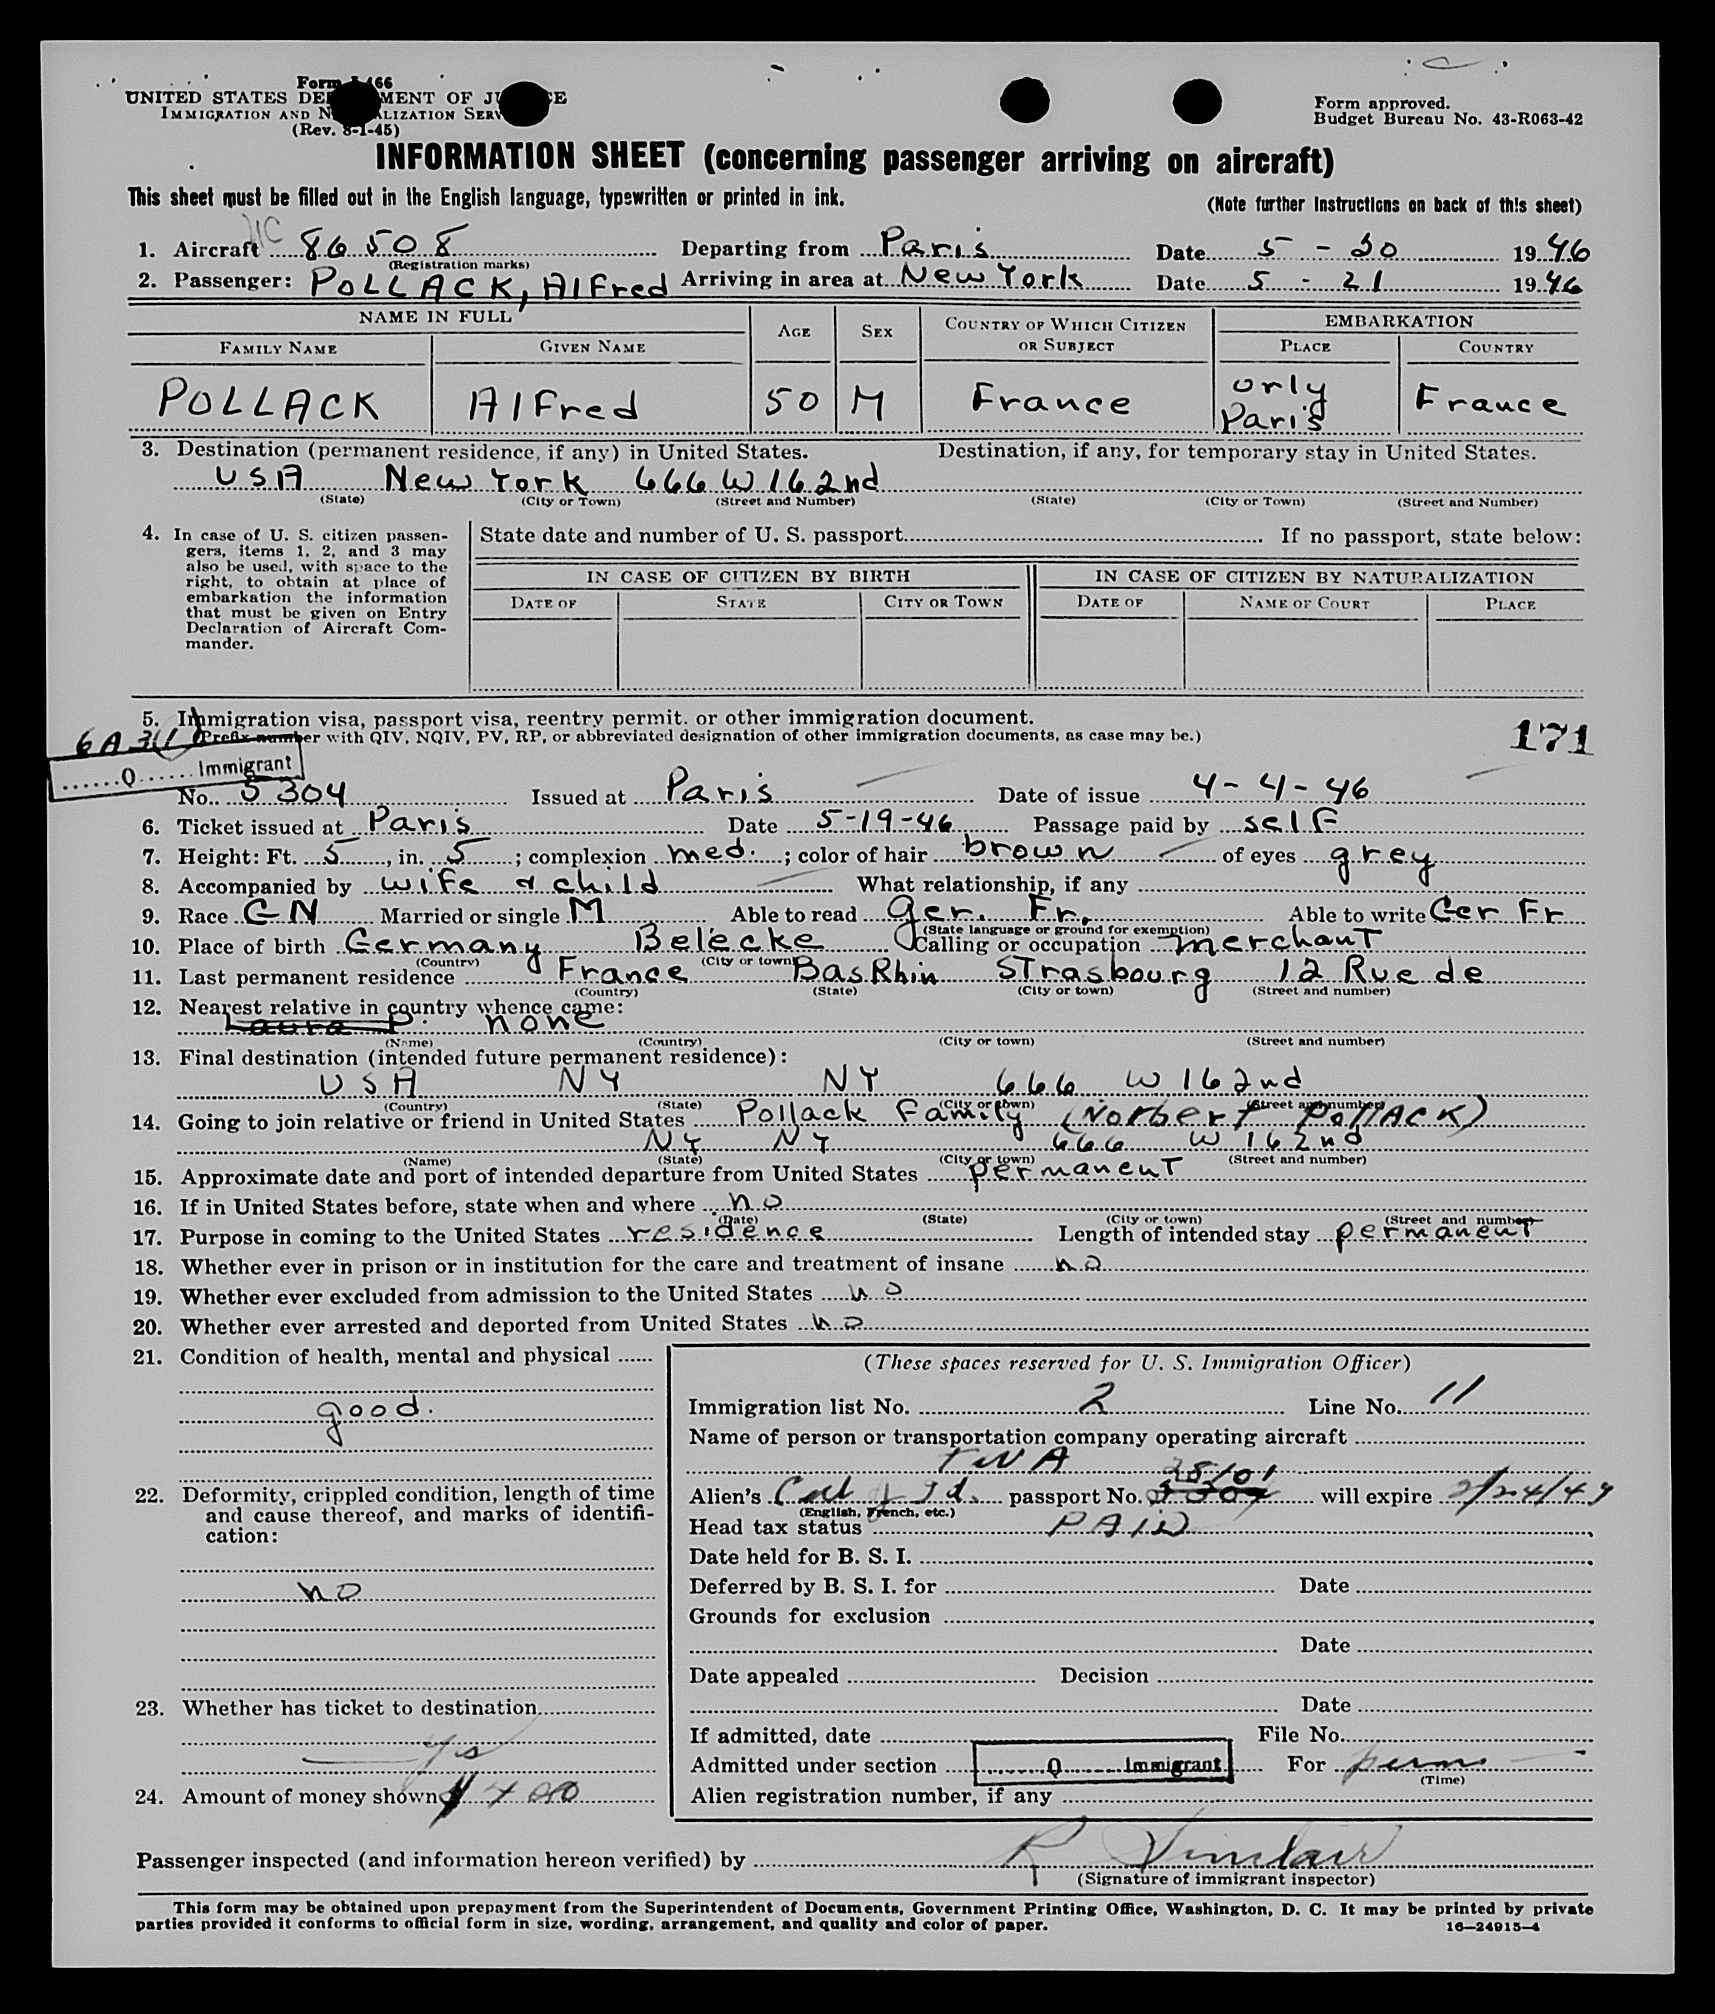 Form I-466
UNITED STATES DEPARTMENT OF JUSTICE
IMMIGRATION AND NATURALIZATION SERVICE
(Rev. 8-1-45)
Form approved.
Budget Bureau No. 43-R063-42
INFORMATION SHEET (concerning passenger arriving on aircraft)
This sheet must be filled out in the English language, typewritten or printed in ink.
(Note further instructions on back of this sheet)
1. Aircraft 86508 Departing from Paris Date 5-20 1946
(Registration marks)
2. Passenger: POLLACK, Alfred Arriving in area at New York Date 5-21 1946
NAME IN FULL AGE SEX COUNTRY OF WHICH CITIZEN OR SUBJECT EMBARKATION
FAMILY NAME GIVEN NAME PLACE COUNTRY
POLLACK Alfred 50 M France Orly Paris France
3. Destination (permanent residence, if any) in United States. Destination, if any, for temporary stay in United States.
USA New York 666 W 162nd
(State) (City or Town) (Street and Number) (State) (City or Town) (Street and Number)
4. In case of U. S. citizen passengers, items 1, 2, and 3 may also be used, with space to the right, to obtain at place of embarkation the information that must be given on Entry Declaration of Aircraft Commander.
State date and number of U. S. passport If no passport, state below:
IN CASE OF CITIZEN BY BIRTH IN CASE OF CITIZEN BY NATURALIZATION
DATE OF STATE CITY OR TOWN DATE OF NAME OF COURT PLACE
5. Immigration visa, passport visa, reentry permit. or other immigration document.
(Prefix number with QIV, NQIV, PV, RP, or abbreviated designation of other immigration documents, as case may be.)
171
Q Immigrant
No. 5304 Issued at Paris Date of issue 4-4-46
6. Ticket issued at Paris Date 5-19-46 Passage paid by self
7. Height: Ft. 5, in. 5; complexion med.; color of hair brown of eyes grey
8. Accompanied by wife & child What relationship, if any
9. Race GN Married or single M Able to read Ger. Fr. Able to write Ger Fr
(State language or ground for exemption)
10. Place of birth Germany Belecke Calling or occupation merchant
(Country) (City or town)
11. Last permanent residence France Bas Rhin Strasbourg 12 Rue de
(Country) (State) (City or town) (Street and number)
12. Nearest relative in country whence came:
none
(Name) (Country) (City or town) (Street and number)
13. Final destination (intended future permanent residence):
USA NY NY 666 W 162nd
(Country) (State) (City or town) (Street and number)
14. Going to join relative or friend in United States Pollack Family (Norbert Pollack)
NY NY 666 W 162nd
(Name) (State) (City or town) (Street and number)
15. Approximate date and port of intended departure from United States permanent
16. If in United States before, state when and where no
(Date) (State) (City or town) (Street and number)
17. Purpose in coming to the United States residence Length of intended stay permanent
18. Whether ever in prison or in institution for the care and treatment of insane no
19. Whether ever excluded from admission to the United States no
20. Whether ever arrested and deported from United States no
21. Condition of health, mental and physical
good.
22. Deformity, crippled condition, length of time and cause thereof, and marks of identification:
no
23. Whether has ticket to destination
yes
24. Amount of money shown $ 400
(These spaces reserved for U. S. Immigration Officer)
Immigration list No. 2 Line No. 11
Name of person or transportation company operating aircraft
TWA
Alien's passport No. 28101 will expire
(English, French, etc.)
Head tax status PAID
Date held for B. S. I.
Deferred by B. S. I. for Date
Grounds for exclusion
Date
Date appealed Decision
Date
If admitted, date File No.
Admitted under section Q Immigrant For perm
(Time)
Alien registration number, if any
Passenger inspected (and information hereon verified) by R Sinclair
(Signature of immigrant inspector)
This form may be obtained upon prepayment from the Superintendent of Documents, Government Printing Office, Washington, D. C. It may be printed by private
parties provided it conforms to official form in size, wording, arrangement, and quality and color of paper.
16—24915-4